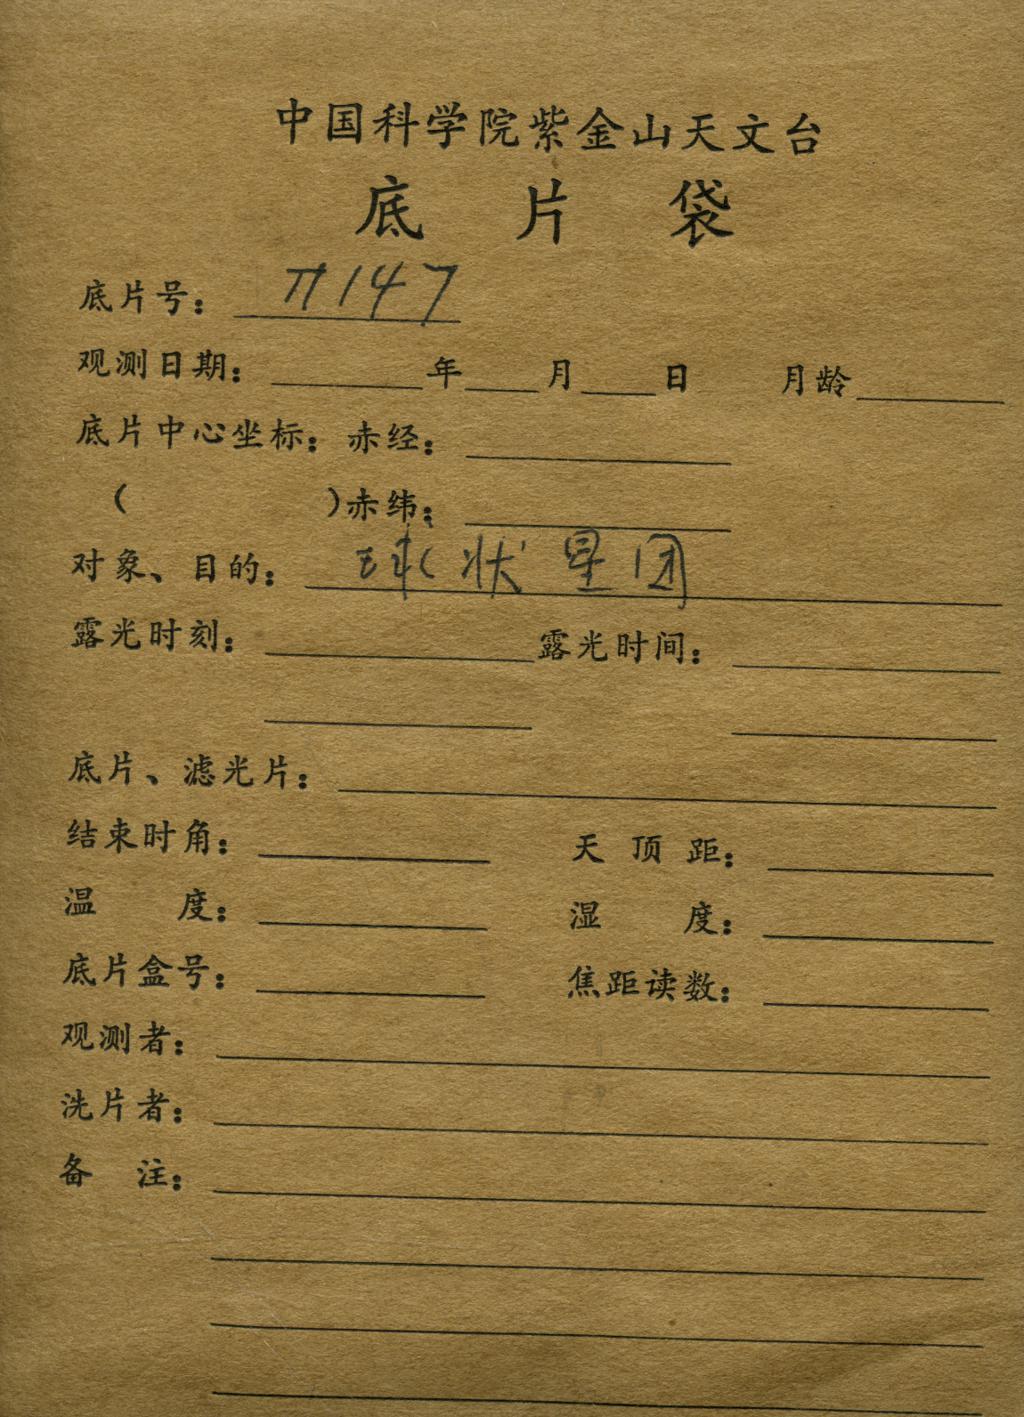 中国科学院紫金山天文台
底片袋
底片号： π147
观测日期： 年 月 日 月龄
底片中心坐标：赤经：
（ ）赤纬：
对象、目的： 球状星团
露光时刻： 露光时间：
底片、滤光片：
结束时角： 天顶距：
温度： 湿度：
底片盒号： 焦距读数：
观测者：
洗片者：
备注：